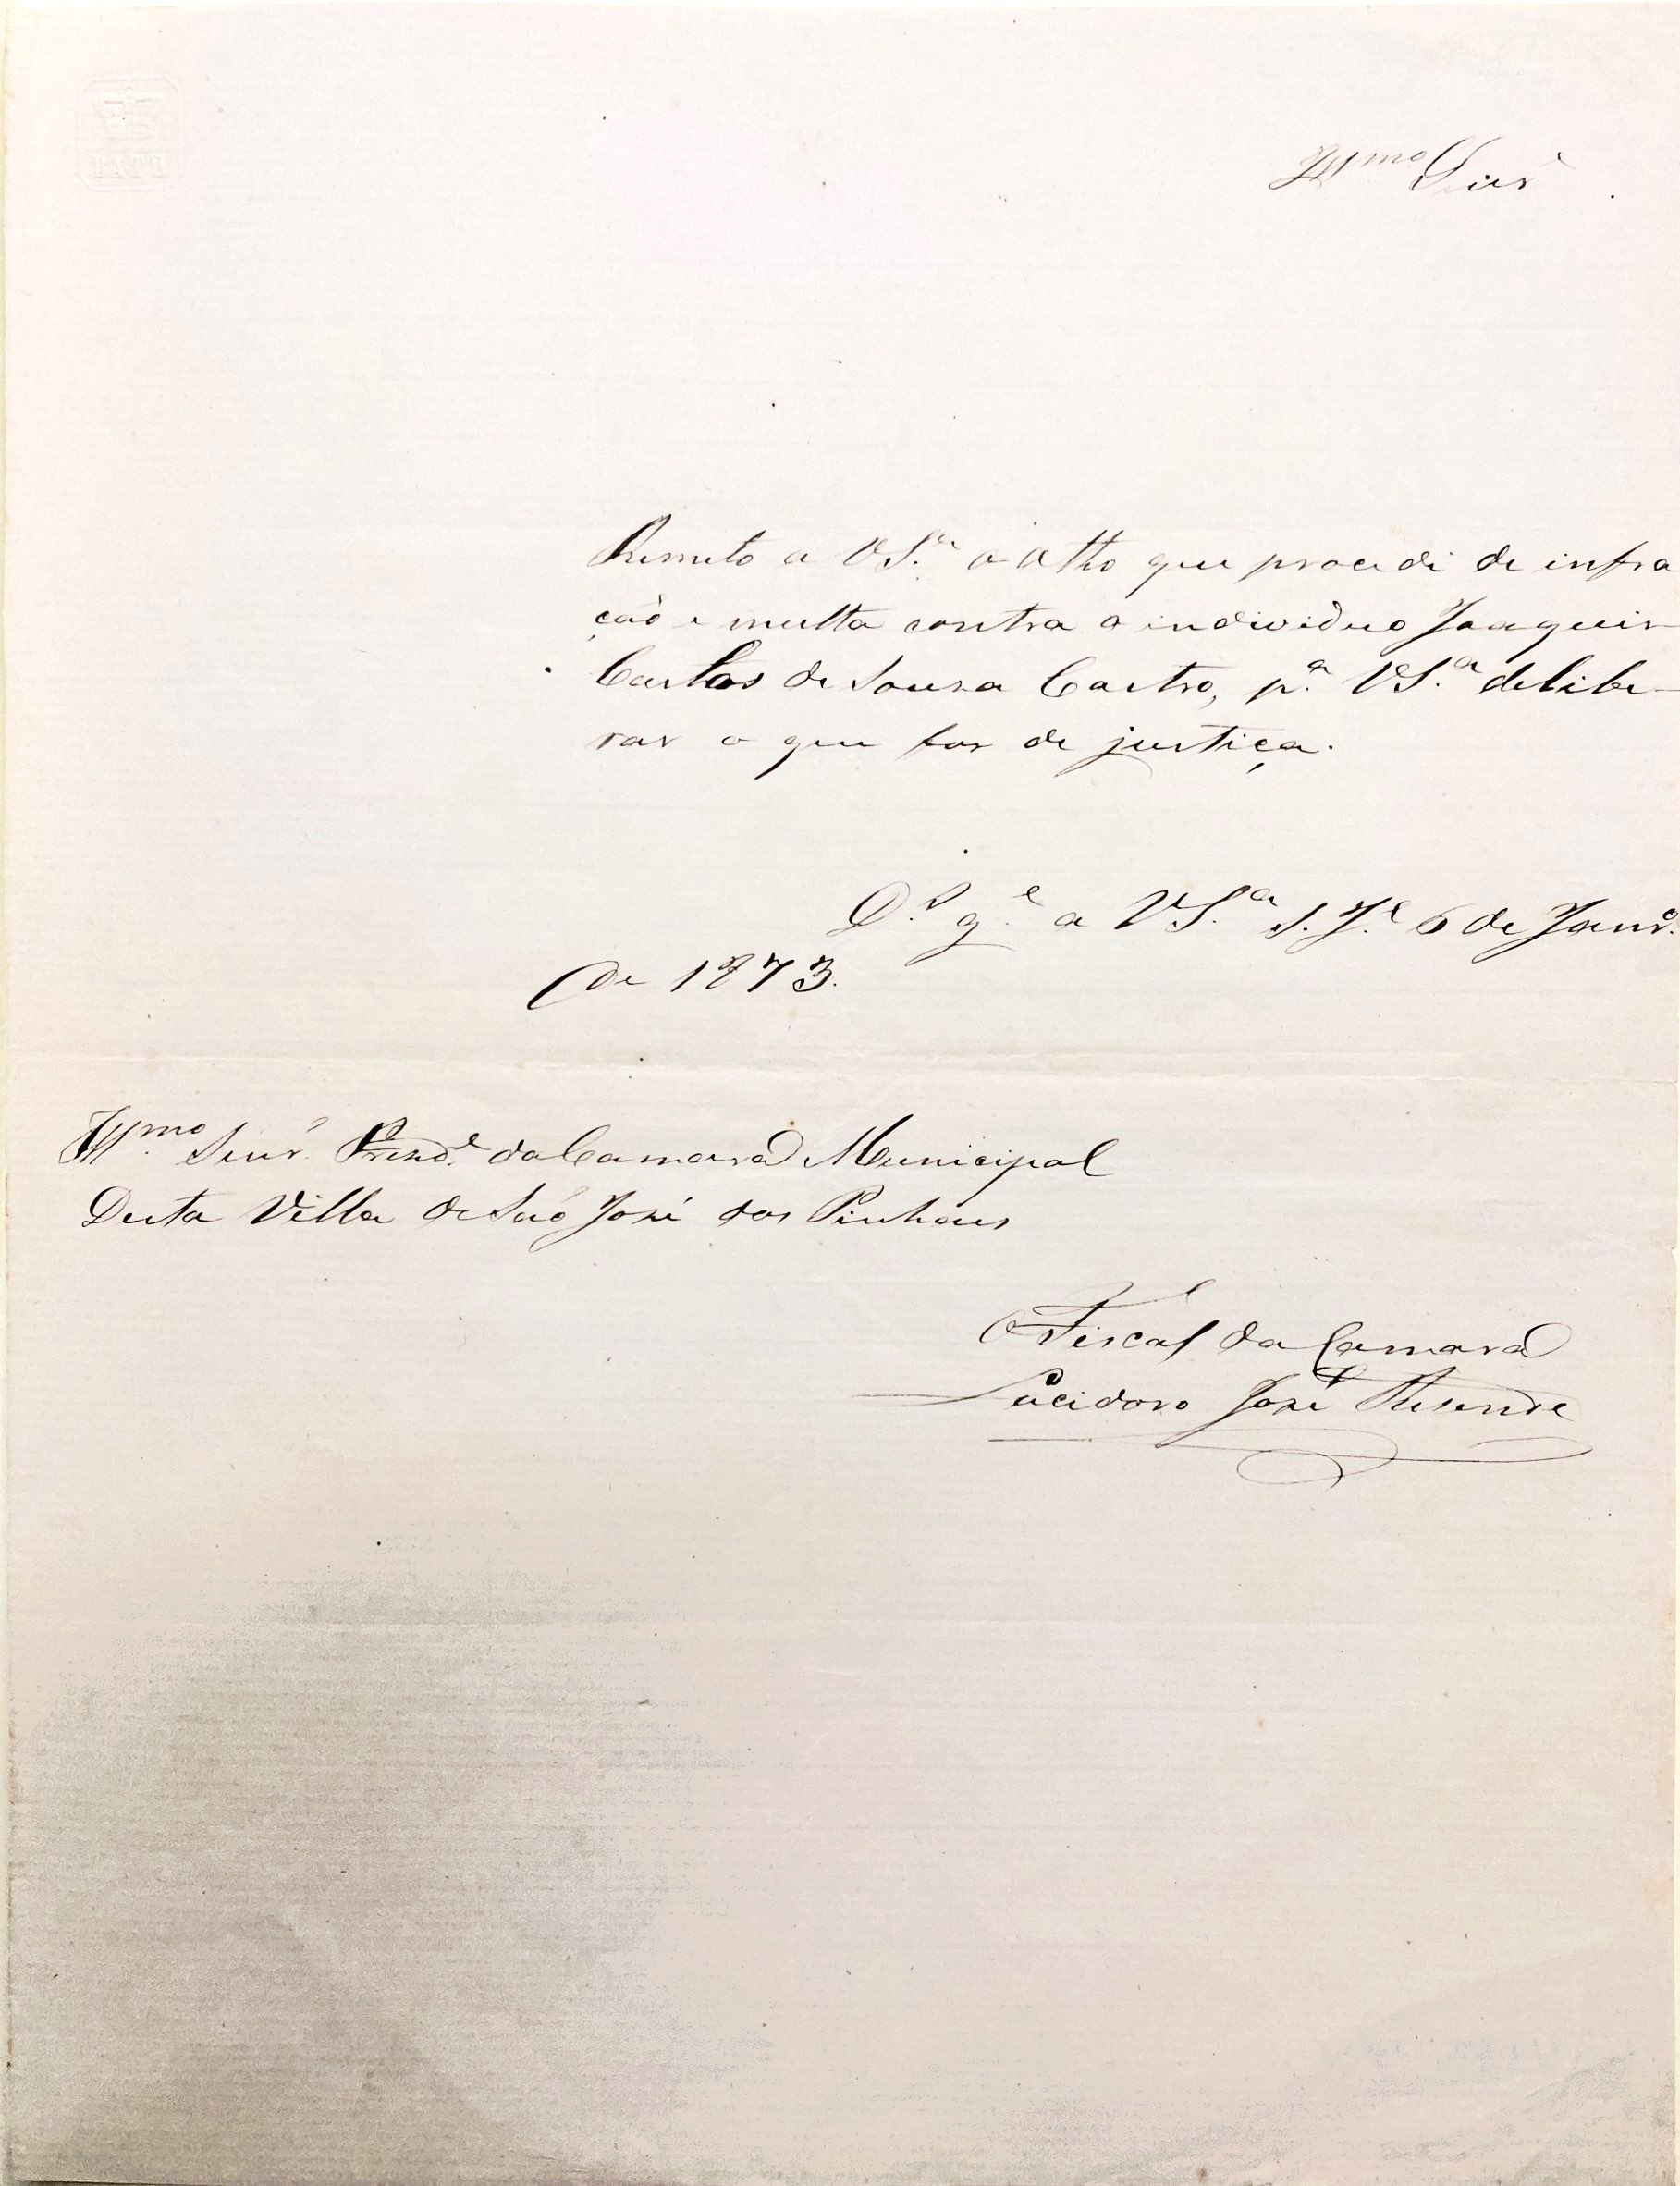 Illmo Snr
Remeto a VS.ª o Atto que procedi de infra
ção e multa contra o individuo Joaquim
Carlos de Souza Castro, p.ª VS.ª delibe-
rar o que for de justiça.
D.s g.e a VS.ª S. J.e 6 de Janr.o
de 1873.
Illmo Snr. Prezd.e da Camara Municipal
Desta Villa de São José dos Pinhaes
O Fiscal da Camara
Lucidoro José Resende